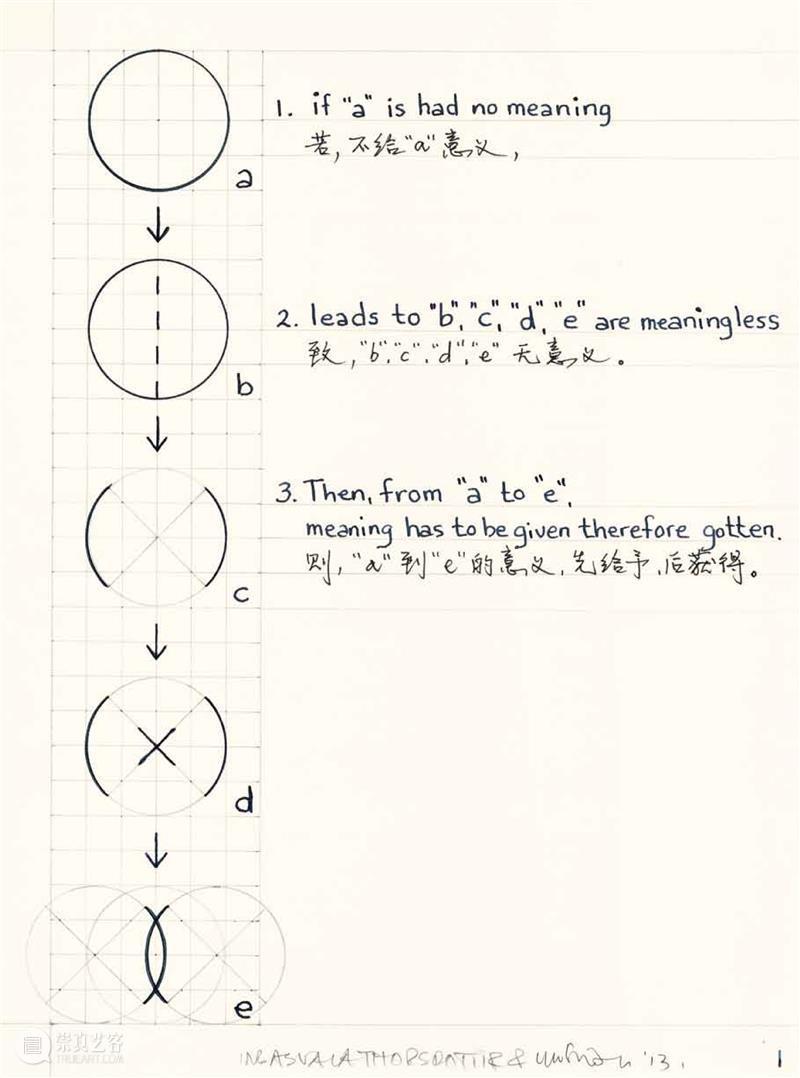 1. if "a" is had no meaning
若,不给"a"意义,
a
2. leads to "b", "c", "d", "e" are meaningless
致,"b","c","d","e"无意义。
b
3. Then, from "a" to "e",
meaning has to be given therefore gotten.
则,"a"到"e"的意义,先给予,后获得。
c
d
e
崇真艺客
TRUEART.COM
'13.
1